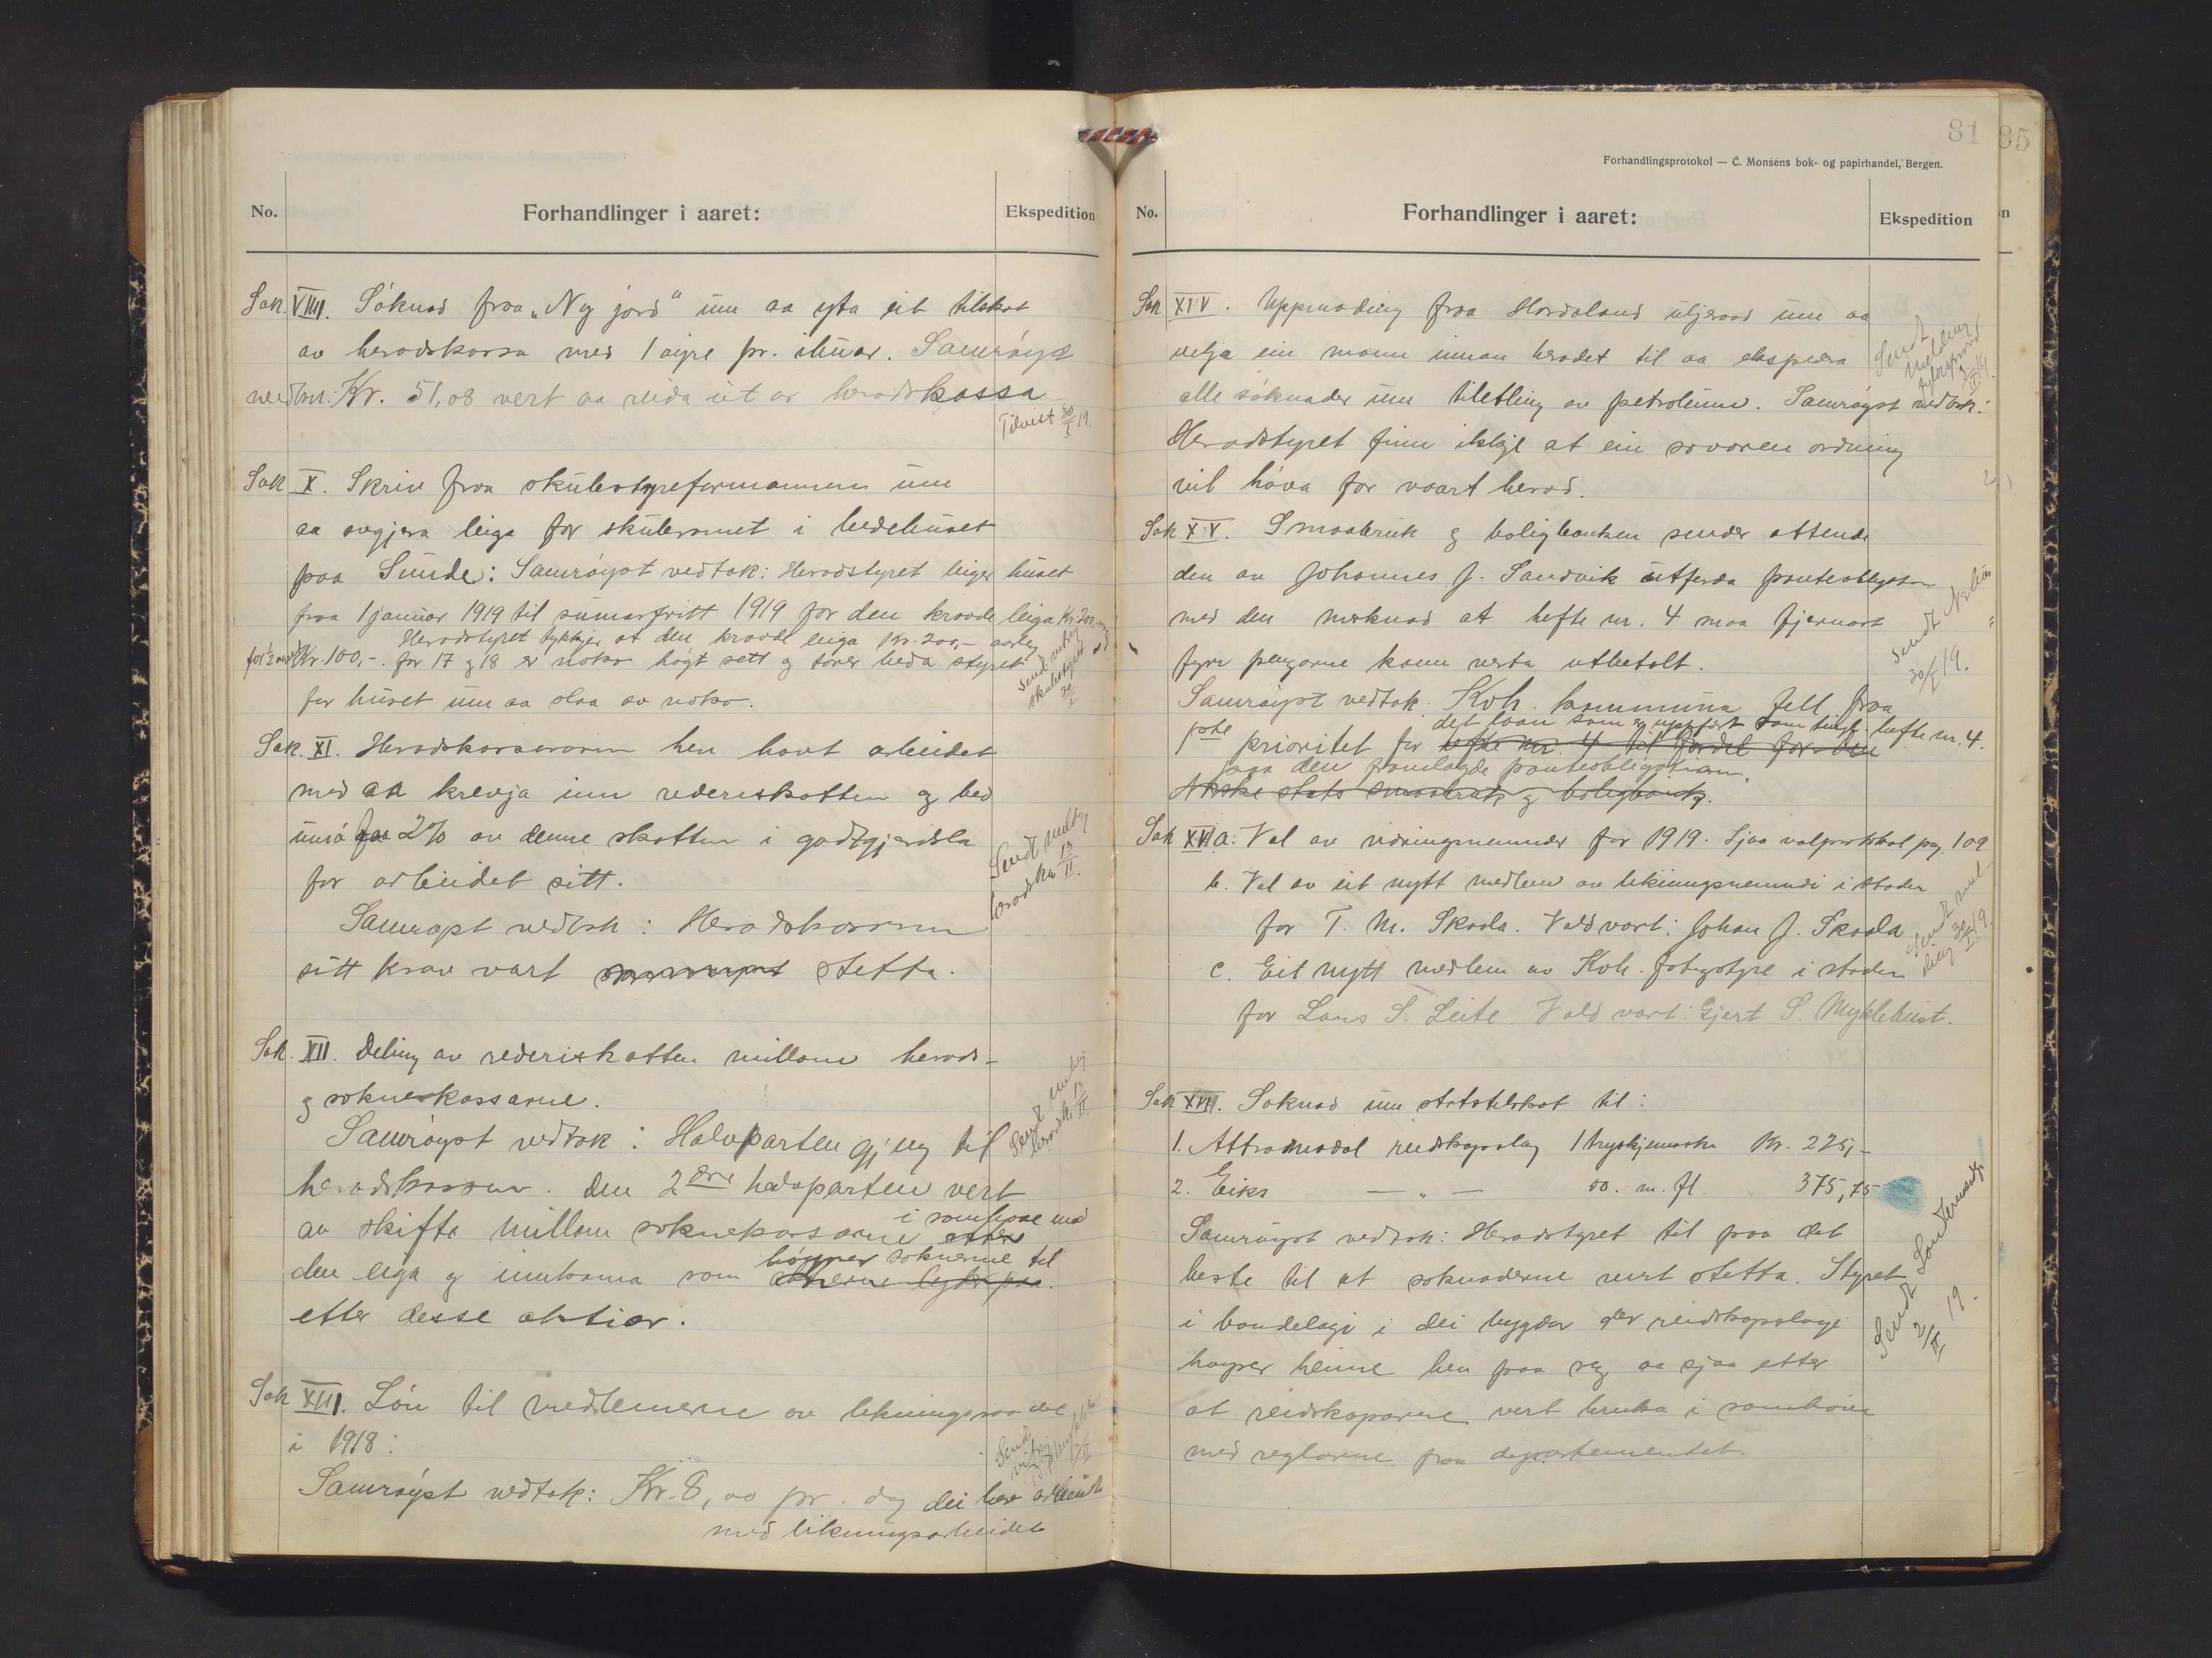 No. Forhandlinger i aaret: Ekspedition
Sak VIIII. Söknad fraa „Ny jord“ um aa yta eit tilskot
av heradskassa med 1 øyre pr. ibuar. Samröyst
vedtak: Kr. 51,08 vert aa reida ut av heradskassa
Tilvist 30/I 19.
Sak X. Skriv fraa skulestyreformannen um
aa avgjera leiga for skuleromet i bedehuset
paa Sunde: Samröyst vedtak: Heradstyret leiger huset
fraa 1 januar 1919 til sumarfritt 1919 for den kravde leiga Kr. 200,-
Heradstyret tykkjer at den kravde leiga Kr. 200,- aarleg
for ½ aaret Kr. 100,-. for 17 og 18 er noko högt sett og torer beda styret
for huset um aa slaa av noko.
Sendt
skulestyret
30/I
Sak. XI. Heradskasseraren hev havt arbeidet
med aa krevja inn rederiskatten og bed
um aa faa 2% av denne skatten i godtgjerdsla
for arbeidet sitt.
Sendt melding
heradsk. 13/II.
Samröyst vedtak: Heradskasseraren
sitt krav vart samröyst stetta.
Sak. XII. Deling av rederiskatten millom herads-
og soknekassarne.
Sendt melding
heradsk. 13/II
Samröyst vedtak: Halvparten gjeng til
heradskassen. den 2dre halvparten vert
i samhøve med
av skifta millom soknekassarne etter
høyrer soknerne til
den eiga og innkoma som
etter desse aktiar.
Sak XIII. Lön til medlemerne av likningsraadet
i 1918:
Samröyst vedtak: Kr. 8,00 pr. dag dei hev arbeidt
med likningsarbeidet
81
85
Forhandlingsprotokol — C. Monsens bok- og papirhandel, Bergen.
No. Forhandlinger i aaret: Ekspedition
Sak XIV. Uppmoding fraa Hordaland oljeraad um aa
velja ein mann innan heradet til aa ekspedera
alle söknader um tiletling av petroleum. Samröyst vedtak:
Heradstyret finn ikkje at ein sovoren ordning
vil höva for vaart herad.
Sendt
melding
19.
Sak XV. Smaabruk og boligbanken sender attende
den av Johannes J. Sandvik utferda panteobligation
med den merknad at hefte nr. 4 maa fjernast
fyrr pengarne kann verta utbetalt.
Sendt
30/I 19.
Samröyst vedtak. Kvh. kommuna fell fraa
det laan som er uppfört som tingl. hefte nr. 4.
prioritet for hefte nr. 4 til fordel for den
paa den framlagde panteobligation.
Norske stats smaabruk og boligbank.
Sak XVI a: Val av virdingsnemnder for 1919. Sjaa valprotokol pag. 109
b. Val av eit nytt medlem av likningsnemndi i staden
for T. M. Skaala. Vald vart: Johan J. Skaala
Sendt mel-
ding 30/I 19.
c. Eit nytt medlem av Kvh. styre i staden
for Lars S. Leite. Vald vart: Gjert S. Myklebust.
Sak XVII. Soknad um statstilskot til:
1. Attramadal reidskapslag 1 treskjemask. Kr. 225,-
2. Eiks — „ — so. m. fl. 375,75
Samröyst vedtak: Heradstyret til paa det
beste til at soknaderne vert stetta. Styret
i bondelagi i dei bygdar der reidskapslagi
høyrer heime hev paa seg aa sjaa etter
at reidskaparne vert bruka i samhöve
med reglarne fraa departementet.
Sendt
2/II 19.